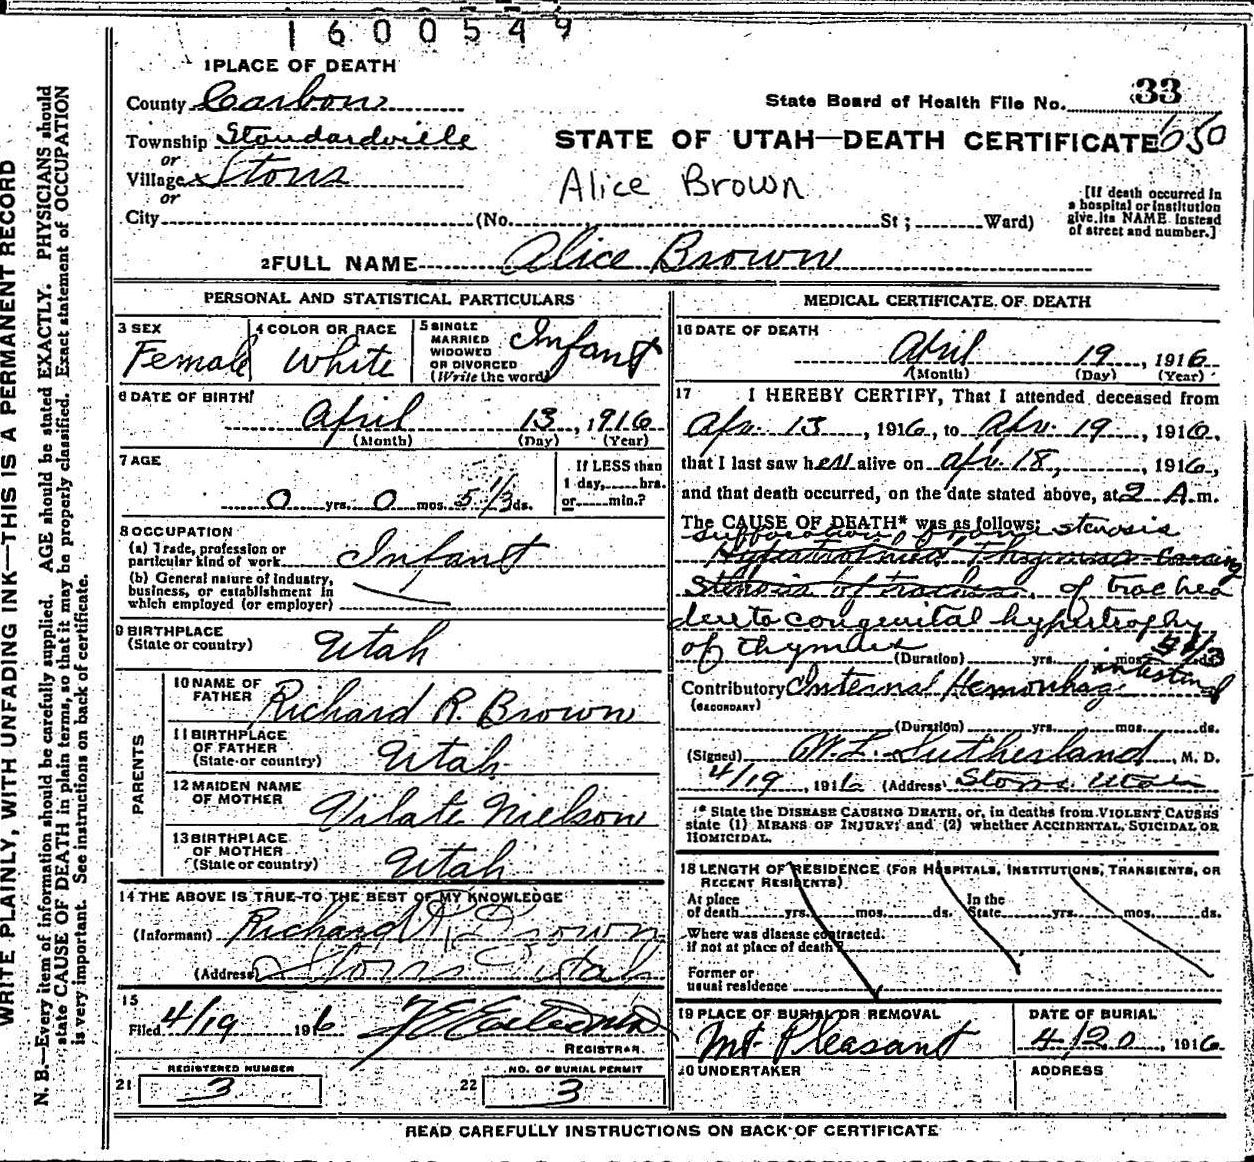 1600549
1 PLACE OF DEATH
County Carbon
State Board of Health File No. 33
Township Standardville
or
STATE OF UTAH—DEATH CERTIFICATE 650
Village Storrs
or
Alice Brown
[If death occurred in
a hospital or institution
give its NAME instead
of street and number.]
City (No. St; Ward)
2 FULL NAME Alice Brown
PERSONAL AND STATISTICAL PARTICULARS
3 SEX
Female
4 COLOR OR RACE
White
5 SINGLE
MARRIED
WIDOWED
OR DIVORCED
(Write the word)
Infant
6 DATE OF BIRTH
April 13, 1916
(Month) (Day) (Year)
7 AGE
0 yrs. 0 mos. 5 1/3 ds.
If LESS than
1 day, hrs.
or min.?
8 OCCUPATION
(a) Trade, profession or
particular kind of work Infant
(b) General nature of industry,
business, or establishment in
which employed (or employer)
9 BIRTHPLACE
(State or country) Utah
PARENTS
10 NAME OF
FATHER Richard R. Brown
11 BIRTHPLACE
OF FATHER
(State or country) Utah
12 MAIDEN NAME
OF MOTHER Vilate Nielson
13 BIRTHPLACE
OF MOTHER
(State or country) Utah
14 THE ABOVE IS TRUE TO THE BEST OF MY KNOWLEDGE
(Informant) Richard R Brown
(Address) Storrs Utah
15
Filed 4/19 1916
REGISTRAR.
REGISTERED NUMBER
21 3
NO. OF BURIAL PERMIT
22 3
MEDICAL CERTIFICATE OF DEATH
16 DATE OF DEATH
April 19, 1916
(Month) (Day) (Year)
17 I HEREBY CERTIFY, That I attended deceased from
Apr. 13, 1916, to Apr. 19, 1916,
that I last saw her alive on Apr. 18, 1916,
and that death occurred, on the date stated above, at 2 A.m.
The CAUSE OF DEATH* was as follows: stenosis
suffocation from
Hypertrophied Thymus causing
Stenosis of trachea. of trachea
due to congenital hypertrophy
of thymus
(Duration) yrs. mos. 5 1/3 ds.
Contributory Internal Hemorrhage intestinal
(SECONDARY)
(Duration) yrs. mos. ds.
(Signed) W.L. Sutherland, M. D.
4/19, 1916 (Address) Storrs, Utah
* State the DISEASE CAUSING DEATH, or, in deaths from VIOLENT CAUSES
state (1) MEANS OF INJURY; and (2) whether ACCIDENTAL, SUICIDAL OR
HOMICIDAL.
18 LENGTH OF RESIDENCE (FOR HOSPITALS, INSTITUTIONS, TRANSIENTS, OR
RECENT RESIDENTS)
At place
of death yrs. mos. ds.
In the
State yrs. mos. ds.
Where was disease contracted,
if not at place of death?
Former or
usual residence
19 PLACE OF BURIAL OR REMOVAL
Mt. Pleasant
DATE OF BURIAL
4/20, 1916
20 UNDERTAKER
ADDRESS
READ CAREFULLY INSTRUCTIONS ON BACK OF CERTIFICATE
WRITE PLAINLY, WITH UNFADING INK—THIS IS A PERMANENT RECORD
N. B.—Every item of information should be carefully supplied. AGE should be stated EXACTLY. PHYSICIANS should
state CAUSE OF DEATH in plain terms, so that it may be properly classified. Exact statement of OCCUPATION
is very important. See instructions on back of certificate.